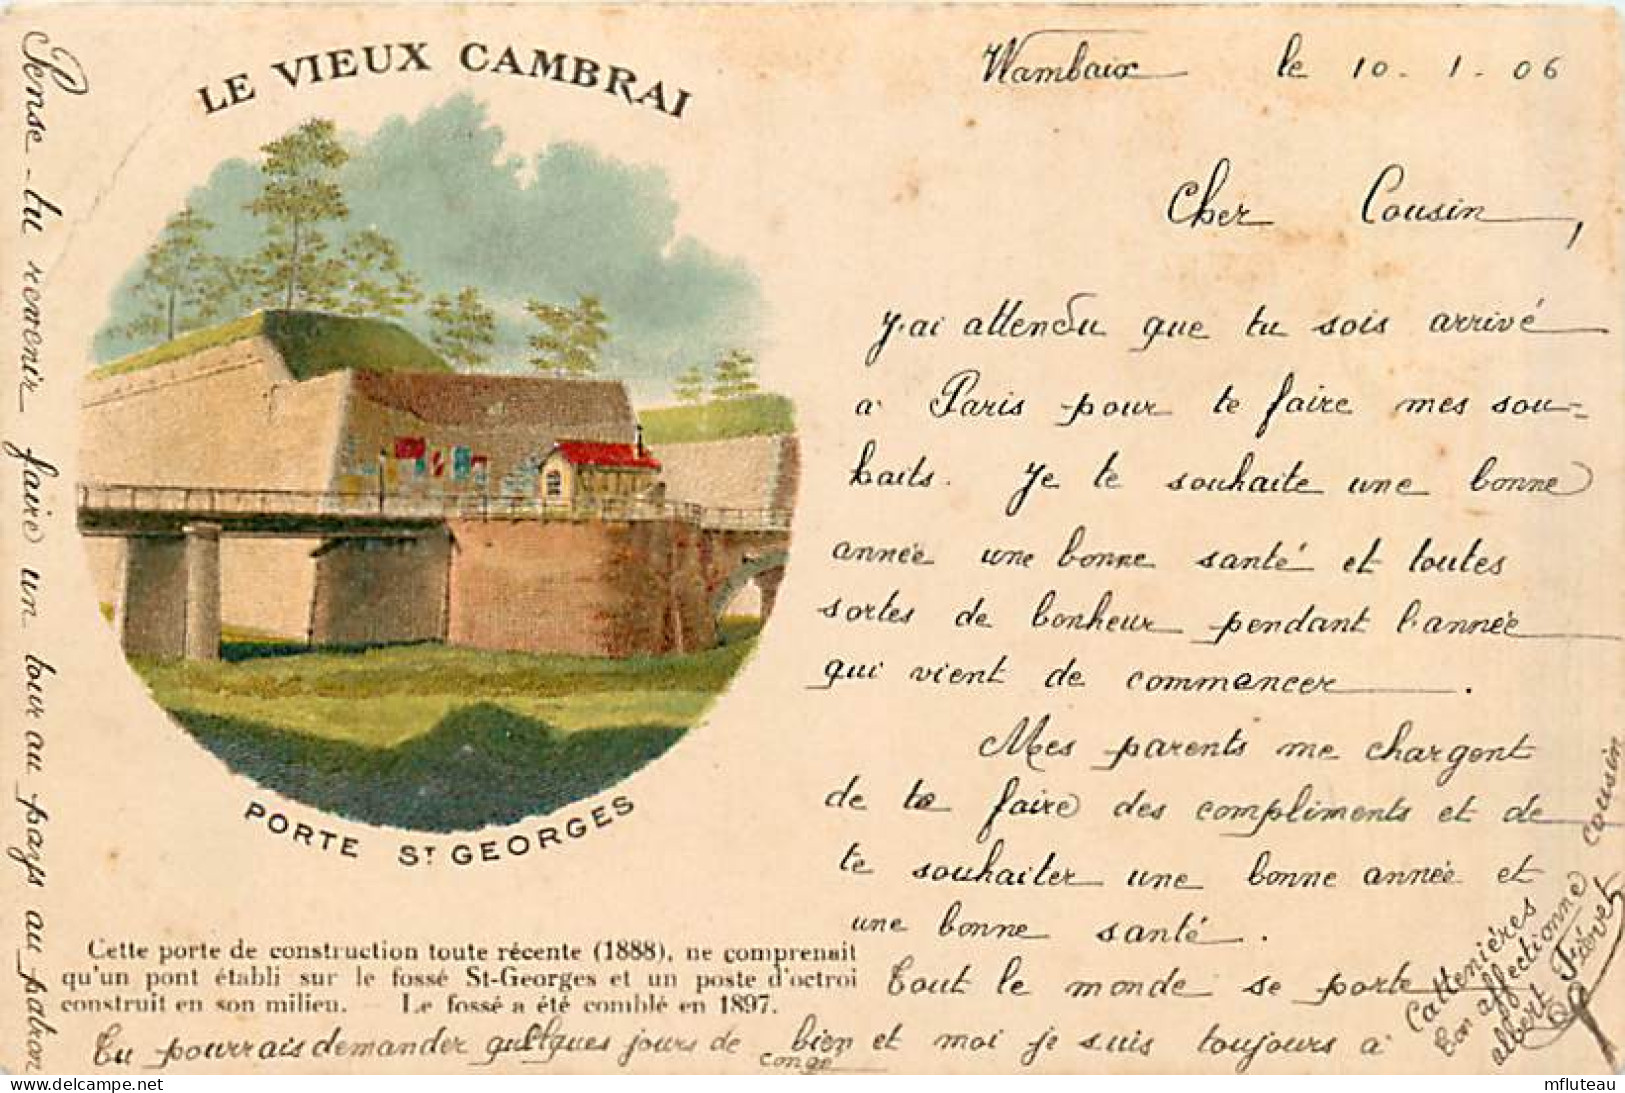 LE VIEUX CAMBRAI
PORTE ST GEORGES
Cette porte de construction toute récente (1888), ne comprenait
qu'un pont établi sur le fossé St-Georges et un poste d'octroi
construit en son milieu. — Le fossé a été comblé en 1897.
Wambaix le 10 - 1 - 06
Cher Cousin,
J'ai attendu que tu sois arrivé
a Paris pour te faire mes sou-
haits. Je te souhaite une bonne
année une bonne santé et toutes
sortes de bonheur pendant l'année
qui vient de commencer.
Mes parents me chargent
de te faire des compliments et de
te souhaiter une bonne année et
une bonne santé.
Tout le monde se porte
bien et moi je suis toujours a
Cattenières
Ton affectionné
albert Fiévet
cousin
Pense-tu revenir faire un tour au pays au patron
Tu pourrais demander quelques jours de
conge
mfluteau